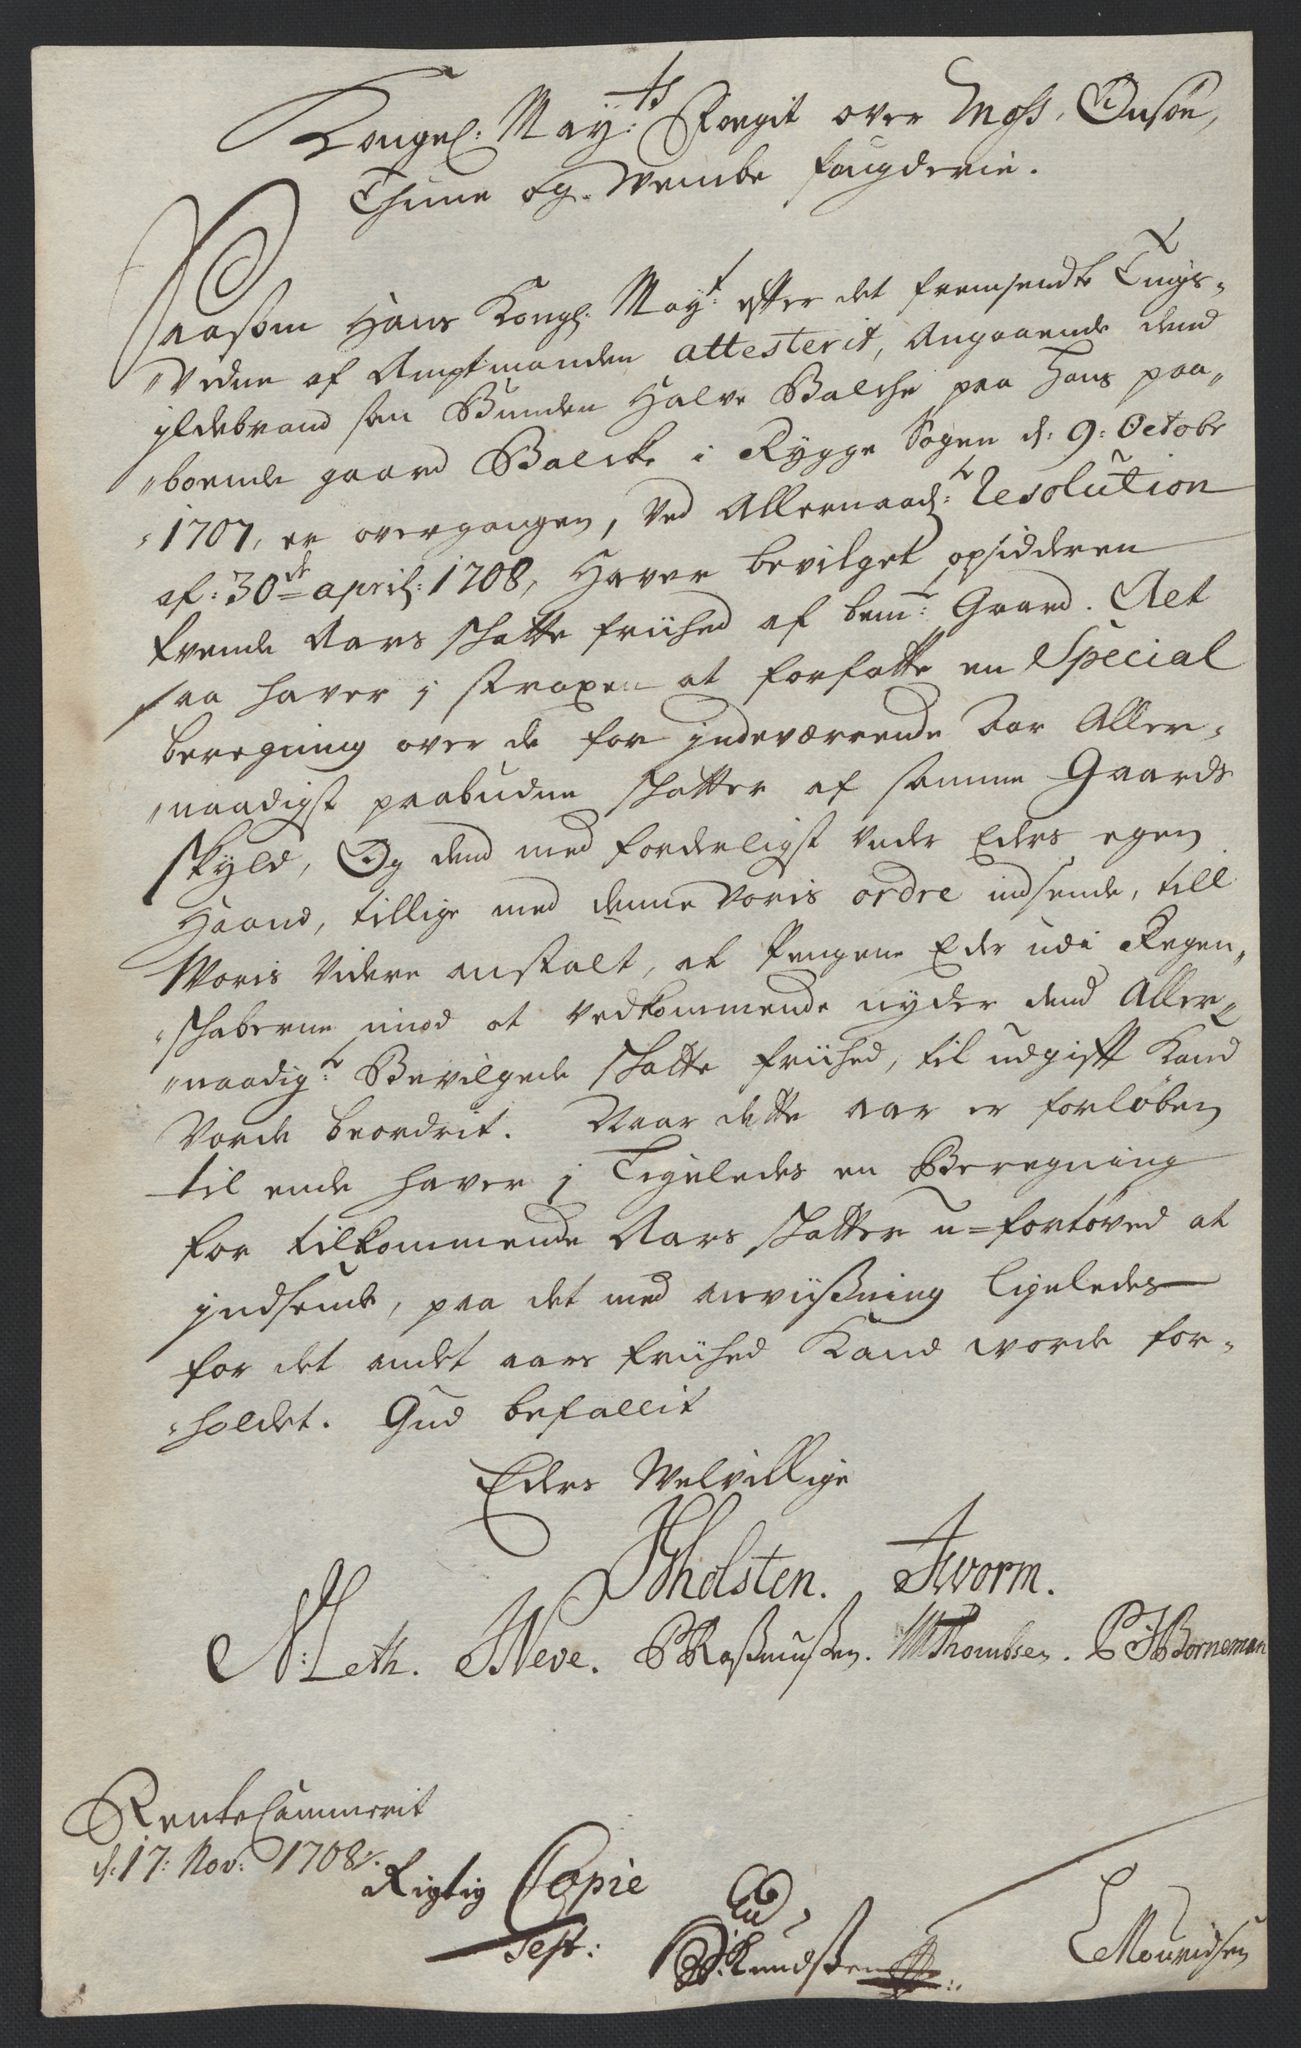 Kongel: May:ts Foegit over Moss, Onsøe,
Thune og Wembe fougderie.
Saasom Hans Kongl: May:t efter det fremsendte Tings-
Vidne af Amptmanden attesterit, Angaaende dend
ildebrand som Bunden Halvor Balche paa hans paa-
boende gaard Balcke i Rygge Sogen d: 9: Octobr
1707, er overgangen, Ved Allernaadi:te Resolution
af: 30de april: 1708, Haver bevilget opsidderen
tvende Aars skatte friihed af bem:te Gaard. Det
saa haver j straxen at forfatte en Special
beregning over de for jndeværrende Aar Aller-
naadigst paabudne skatter af samme Gaards
skyld, Og dend med forderligst under Eders egen
Haand, tillige med denne Voris ordre indsende, till
Woris Videre anstalt, at Pengene Eder udi Regen-
skaberne imod at Vedkommende nyder dend Aller-
naadig:te Bevilgede skatte friihed, til udgift Kand
Vorde beordrit. Naar dette aar er forløben
til ende haver j Ligeledes en Beregning
for tilkommende Aars skatter u-fortøved at
jndsende, paa det med anviißning ligeledes
for det andet aars friihed Kand worde for-
holdet. Gud befallit
Eders Welvillige
JHholsten. JWorm.
N: Leth. JNeve. PRaßmußen. MThombsen. PJBorneman
RenteCammerit
d: 17: Nov: 1708.
Rigtig Copie
Test:
Knudßen
Mouridsen